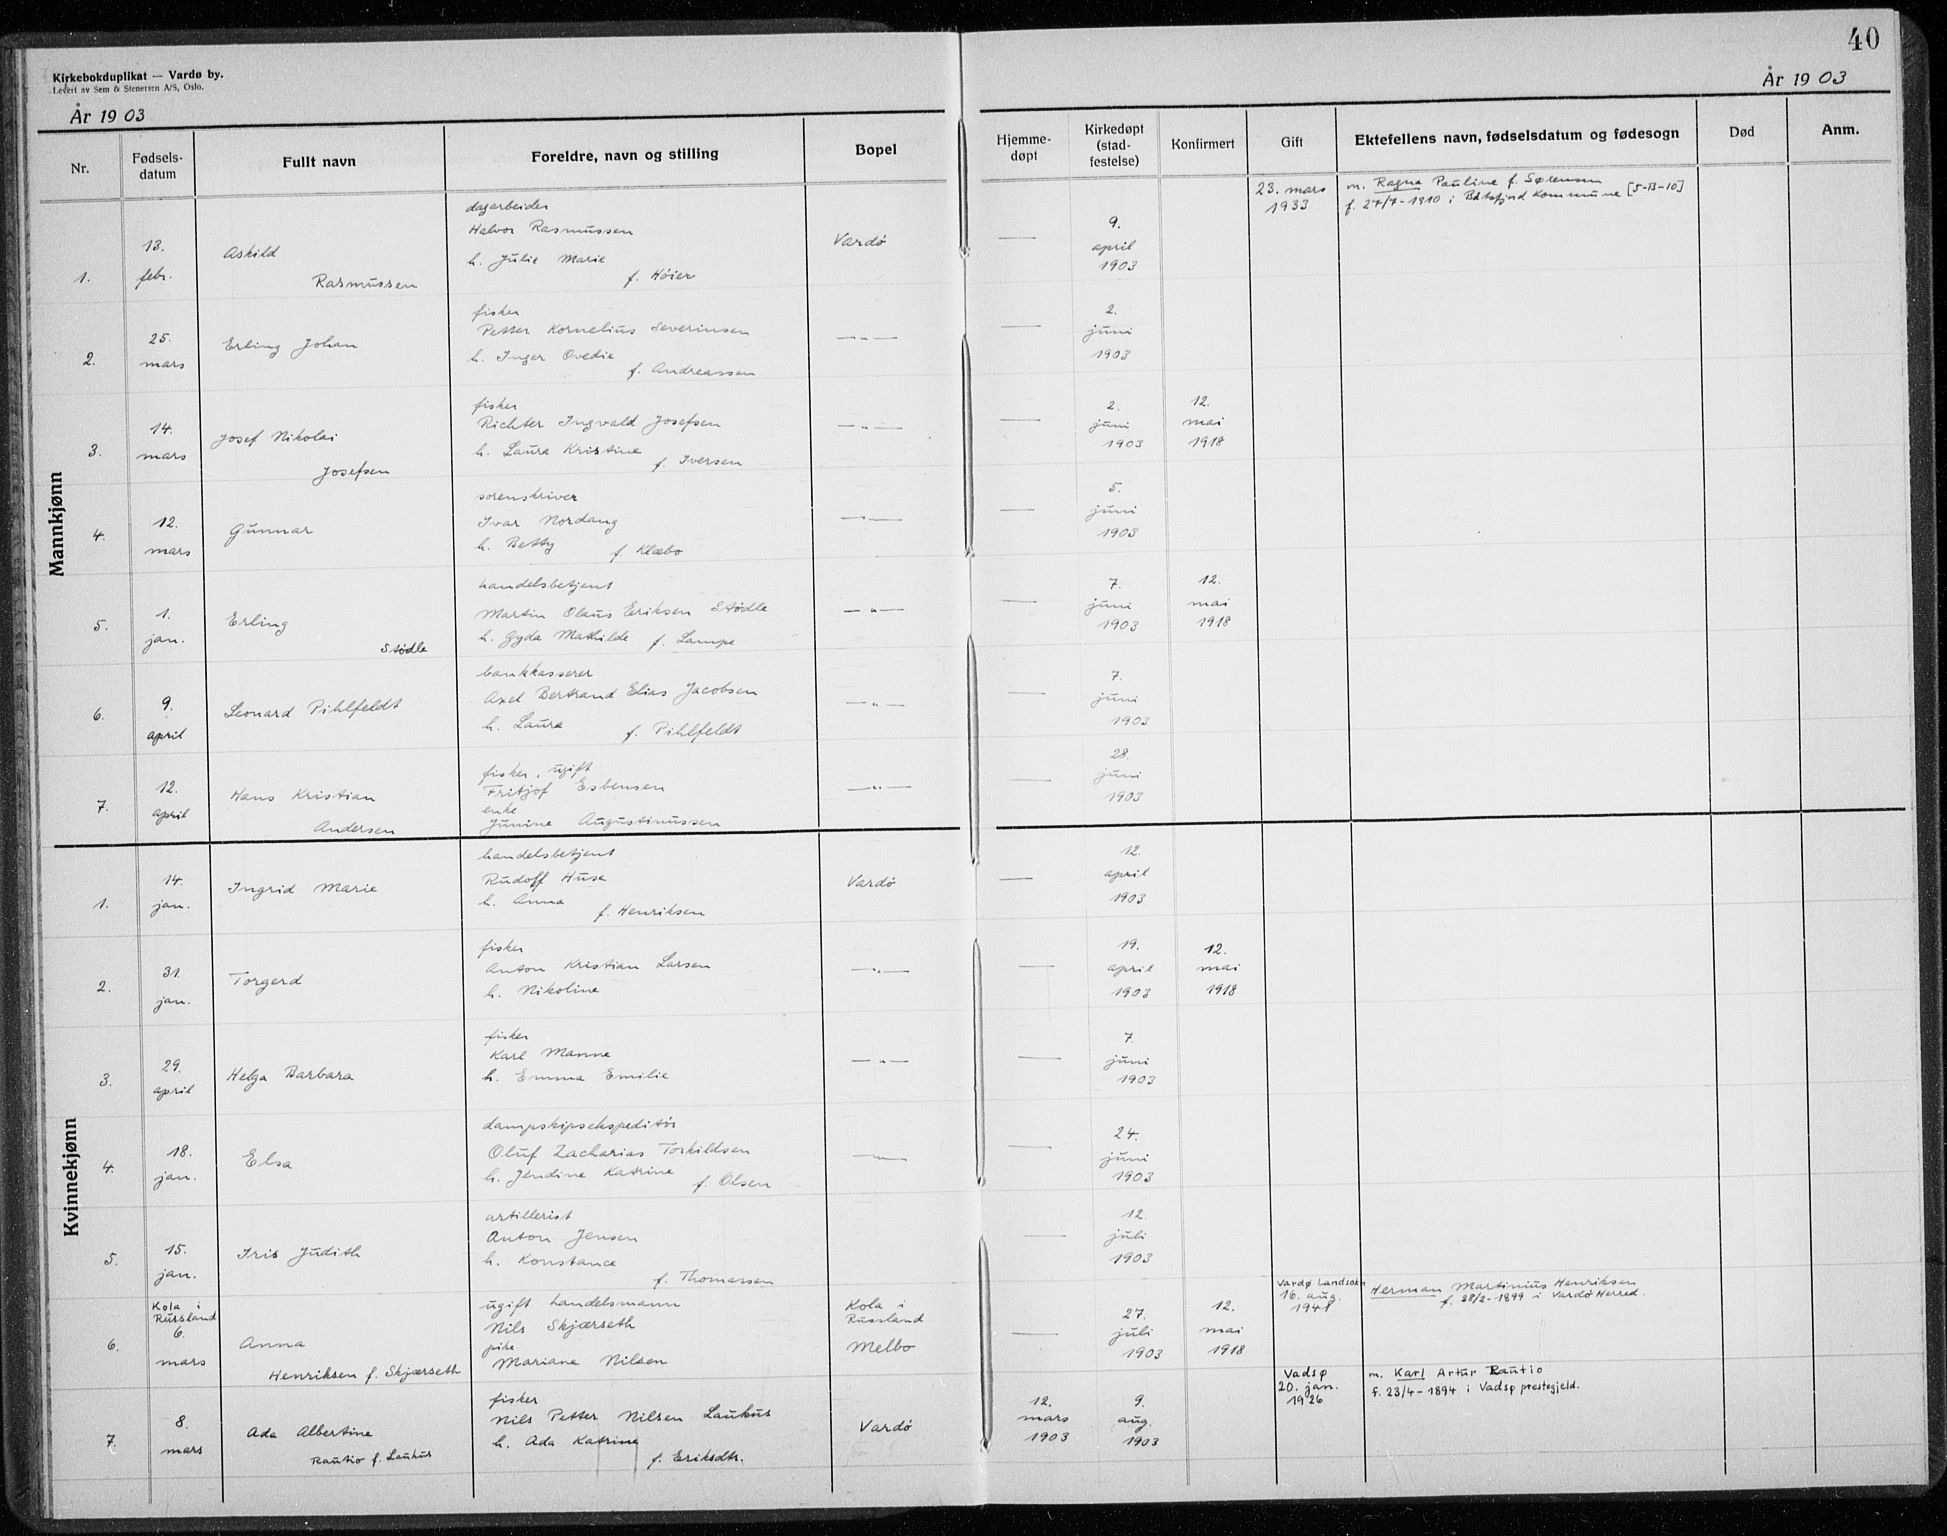 40
Kirkebokduplikat — Vardø by.
Levert av Sem & Stenersen A/S, Oslo.
År 1903
År 1903
Nr.
Fødsels-
datum
Fullt navn
Foreldre, navn og stilling
Bopel
Hjemme-
døpt
Kirkedøpt
(stad-
festelse)
Konfirmert
Gift
Ektefellens navn, fødselsdatum og fødesogn
Død
Anm.
Mannkjønn
1.
13.
febr.
Askild
Rasmussen
dagarbeider
Halvor Rasmussen
h. Julie Marie
f. Höier
Vardö
—
9.
april
1903
23. mars
1933
m. Ragna Pauline f. Sørensen
f. 27/7-1910 i Båtsfjord kommune [5-B-10]
2.
25.
mars
Erling Johan
fisker
Petter Kornelius Severinsen
h. Inger Ovedie
f. Andreassen
— " —
—
2.
juni
1903
3.
14.
mars
Josef Nikolai
Josefsen
fisker
Richter Ingvald Josefsen
h. Laura Kristine
f. Iversen
— " —
—
2.
juni
1903
12.
mai
1918
4.
12.
mars
Gunnar
sorenskriver
Ivar Nordang
h. Betty f. Klæbo
— " —
—
5.
juni
1903
5.
1.
jan.
Erling
Stödle
handelsbetjent
Martin Olaus Eriksen Stödle
h. Gyda Mathilde f. Lampe
— " —
—
7.
juni
1903
12.
mai
1918
6.
9.
april
Leonard Pihlfeldt
bankkasserer
Axel Bertrand Elias Jacobsen
h. Laura f. Pihlfeldt
— " —
—
7.
juni
1903
7.
12.
april
Hans Kristian
Andersen
fisker, ugift
Fritjof Esbensen
enke
Junine Augustinussen
— " —
—
28.
juni
1903
Kvinnekjønn
1.
14.
jan.
Ingrid Marie
handelsbetjent
Rudolf Huse
h. Anna
f. Henriksen
Vardö
—
12.
april
1903
2.
31.
jan.
Torgerd
fisker
Anton Kristian Larsen
h. Nikoline
— " —
—
19.
april
1903
12.
mai
1918
3.
29.
april
Helga Barbara
fisker
Karl Manne
h. Emma Emilie
— " —
—
7.
juni
1903
4.
18.
jan.
Elsa
dampskipsekspeditör
Oluf Zacharias Torkildsen
h. Jendine Katrine
f. Olsen
— " —
—
24.
juni
1903
5.
15.
jan.
Iris Judith
artillerist
Anton Jensen
h. Konstance
f. Thomassen
—
12.
juli
1903
6.
Kola i
Russland
6.
mars
Anna
Henriksen f. Skjærseth
ugift handelsmann
Nils Skjærseth
pike
Mariane Nilsen
Kola i
Russland
Melbo
—
27.
juli
1903
12.
mai
1918
Vardø Landsokn
16. aug.
1941
Herman Martinius Henriksen
f. 28/2-1899 i Vardö Herred.
7.
8.
mars
Ada Albertine
Rautio f. Laukus
fisker
Nils Petter Nilsen Laukus
h. Ada Katrine
f. Eriksdtr.
Vardö
12.
mars
1903
9.
aug.
1903
Vadsø
20. jan.
1926
m. Karl Artur Rautio
f. 23/4-1894 i Vadsø prestegjeld.